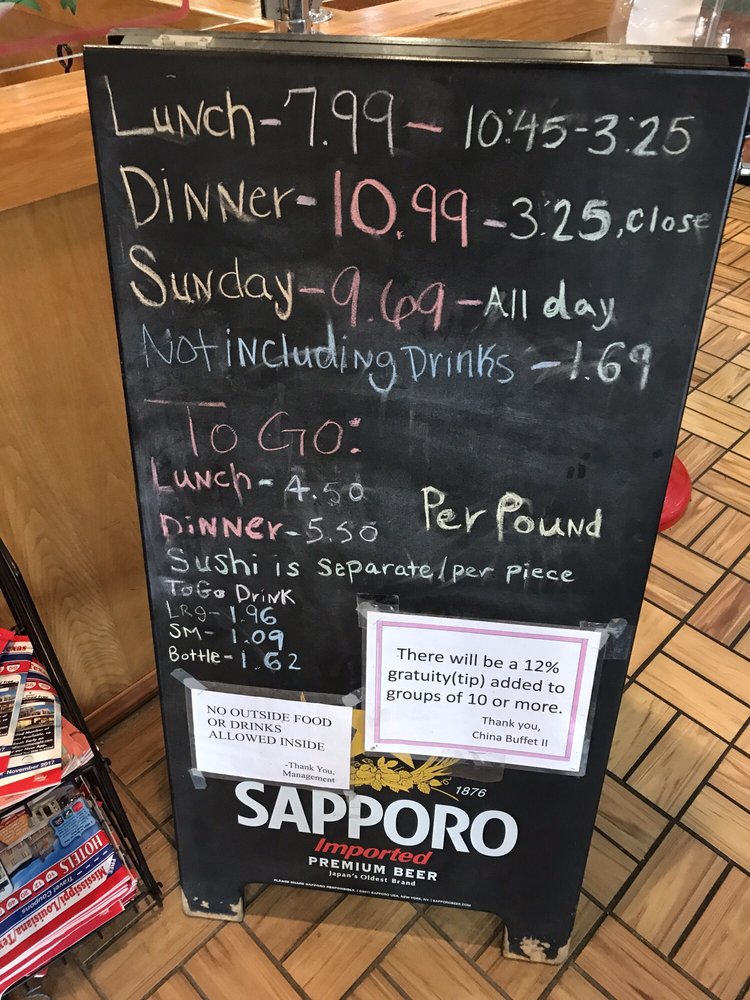 Lunch-7.99-10:45-3:25
Dinner-10.99-3:25,Close
Sunday-9.69-All day
Not including Drinks -1.69
To Go:
Lunch-4.50
Dinner-5.50
Per Pound
Sushi is separate/per piece
ToGo Drink
LRg-1.96
SM-1.09
Bottle-1.62
There will be a 12%
gratuity(tip) added to
groups of 10 or more.
Thank you,
China Buffet II
NO OUTSIDE FOOD
OR DRINKS
ALLOWED INSIDE
-Thank You,
Management
1876
SAPPORO
Imported
PREMIUM BEER
Japan's Oldest Brand
PLEASE SHARE SAPPORO RESPONSIBLY. ©2011 SAPPORO USA, NEW YORK, NY | SAPPOROBEER.COM
Texas
November 2017
HOTELS
Travel Coupons
Mississippi/Louisiana/Te